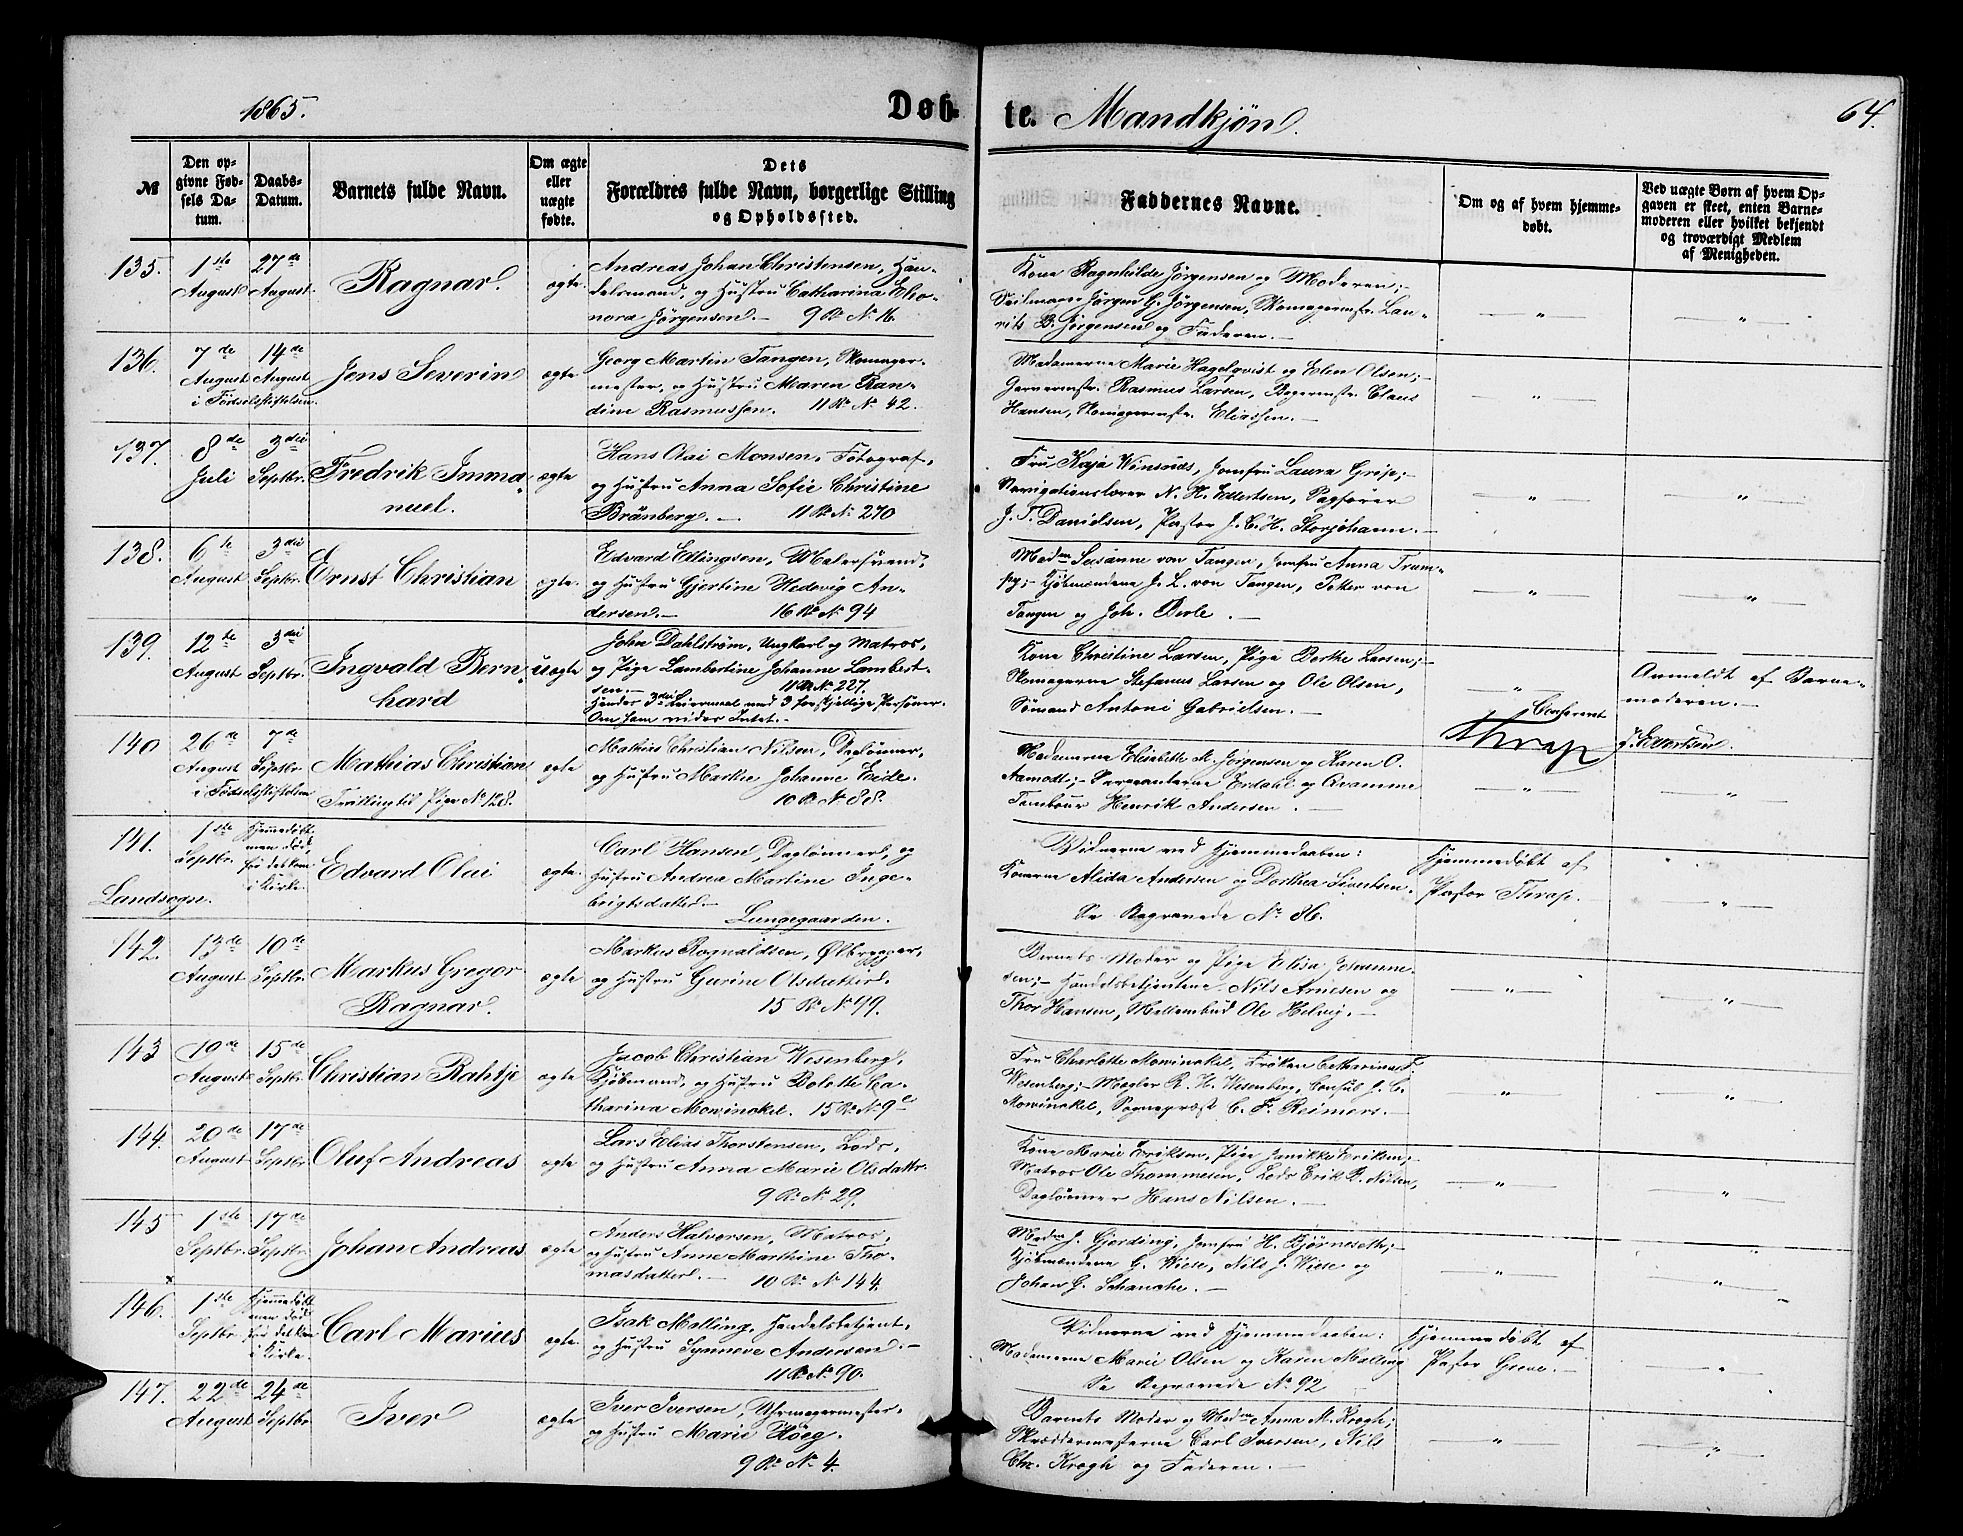 1865.
Døb-
te. Mandkjøn.
64.
№
Den opgivne Fødsels Datum.
Daabs-Datum.
Barnets fulde Navn.
Om ægte eller uægte fødte.
Dets Forældres fulde Navn, borgerlige Stilling og Opholdssted.
Faddernes Navne.
Om og af hvem hjemmedøbt.
Ved uægte Børn af hvem Opgaven er skeet, enten Barnemoderen eller hvilket bekjendt og troværdigt Medlem af Menigheden.
135. 1ste August 27de August Ragnar. ægte.
Andreas Johan Christensen, Han-
delsmand, og Hustru Catharina Eleo-
nora Jørgensen.— 9 R. N. 16.
Kone Ragnhilde Jørgensen og Moderen;—
Seilmager Jørgen G. Jørgensen, Skomagermstr. Lau-
rits B. Jørgensen og Faderen.—
136. 7de August 14de August Jens Severin ægte
i Fødselsstiftelsen.
Georg Martin Tangen, Skomager-
mester, og Hustru Maren Ran-
dine Rasmussen. 11 R. N. 42.
Madamerne Marie Hagelqvist og Elen Olsen;—
Garvermstr. Rasmus Larsen, Bagermstr. Claus
Hansen, Skomagermstr. Eliassen.—
137. 8de Juli 3die Septbr. Fredrik Imma-
nuel. ægte
Hans Olai Monsen, Fotograf,
og Hustru Anna Sofie Christine
Brånberg.— 11 R. N. 270
Fru Kaja Winsnæs, Jomfru Laura Greip;—
Navigationslærer N. H. Edlertsen,
J. T. Danielsen, Pastor J. C. H. Storjohann.—
138. 6te August 3die Septbr. Ernst Christian ægte.
Edvard Edlingsen, Malersvend,
og Hustru Gjertine Hedevig An-
dersen.— 16 R. N. 94
Madm Susanne von Tangen, Jomfru Anna Trum-
py;— Kjøbmændene J. L. von Tangen, Petter von
Tangen og Joh. Berle.—
139. 12te August 3die Septbr. Ingvald Bern-
hard uægte
John Dahlstrøm, Ungkarl og Matros,
og Pige Lambertine Johanne Lambert-
sen.— 11 R. N. 227.
Hendes 3die Leiermaal med 3 forskjellige Personer.
Om ham vides Intet.—
Kone Christine Larsen, Pige Berthe Larsen;—
Skomagerne Stefanus Larsen og Ole Olsen,
Sømand Antoni Gabrielsen.—
Anmeldt af Barne-
moderen.—
Confererut
Thrap
140 26de August 7de Septbr. Mathias Christian ægte
i Fødselsstiftelsen Tvilling til Pige N. 128.
Mathias Christian Nilsen, Daglønner,
og Hustru Marthe Johanne Eide.
10 R. N. 88.
Madamerne Elisabeth M. Jørgensen og Karen O.
Aamodt;— Sergeanterne Erdahl og Qvamme
Tambour Henrik Andersen.—
141. 1ste Septbr. Hjemmedøbt
men død,
før det kom
i Kirke Edvard Olai ægte.
Landsogn.
Carl Hansen, Daglønner, og
Hustru Andrea Martine Inge-
brigtsdatter.—
Lungegaarden.
Vidnerne ved Hjemmedaaben:
Konerne Alida Andersen og Dorthea Sivertsen.
Se Begravede N. 86.
Hjemmedøbt af
Pastor Thrap.
142. 13de August 10de Septbr. Markus Gregor
Ragnar. ægte
Markus Rognaldsen, Ølbrygger,
og Hustru Gurine Olsdatter.
15 R. N. 99.
Barnets Moder og Pige Elisa Johanne-
sen;— Handelsbetjentene Nils Arnesen og
Thor Hansen, Mellembud Ole Helvig.—
143 19de August 15de Septbr. Christian Rahtje ægte
Jacob Christian Wesenberg,
Kjøbmand, og Hustru Bolette Ca-
tharina Mowinckel. 15 R. N. 9
Fru Charlotte Mowinckel, Frøken Catharina F.
Wesenberg;— Mægler R. H. Wesenberg, Consul J. E.
Mowinckel, Sognepræst C. F. Reimers.—
144. 20de August 17de Septbr. Oluf Andreas ægte
Lars Elias Thorstensen, Lods,
og Hustru Anna Marie Olsdatter.
9 R. N. 29.
Kone Marie Eriksen, Pige Janikke Eriksen;
Matros Ole Thommesen, Lods Erik B. Nilsen,
Daglønner Hans Nilsen.—
145 1ste Septbr. 17de Septbr. Johan Andreas ægte
Anders Halvorsen, Matros,
og Hustru Anne Marthine Tho-
masdatter.— 10 R. N. 144.
Madm J. Gjerding, Jomfru H. Bjørneseth;—
Kjøbmændene G. Wiese, Nils J. Wiese og
Johan G. Schanche.—
146. 1ste Septbr. Hjemmedøbt
men død
før det kom
i Kirke Carl Marius ægte.
Isak Malling, Handelsbetjent,
og Hustru Synneve Andersen.—
11 R. N. 90.
Vidnerne ved Hjemmedaaben:
Madamerne Marie Olsen og Karen Malling
Se Begravede N. 92
Hjemmedøbt af
Pastor Greve.—
147. 22de August 24de Septbr. Iver ægte
Iver Iversen, Uhrmagermester,
og Hustru Marie Höeg.
9 R. N. 4.
Barnets Moder og Madm Anna M. Krogh;
Skræddermesterne Carl Iversen, Nils
Chr. Krogh og Faderen.—